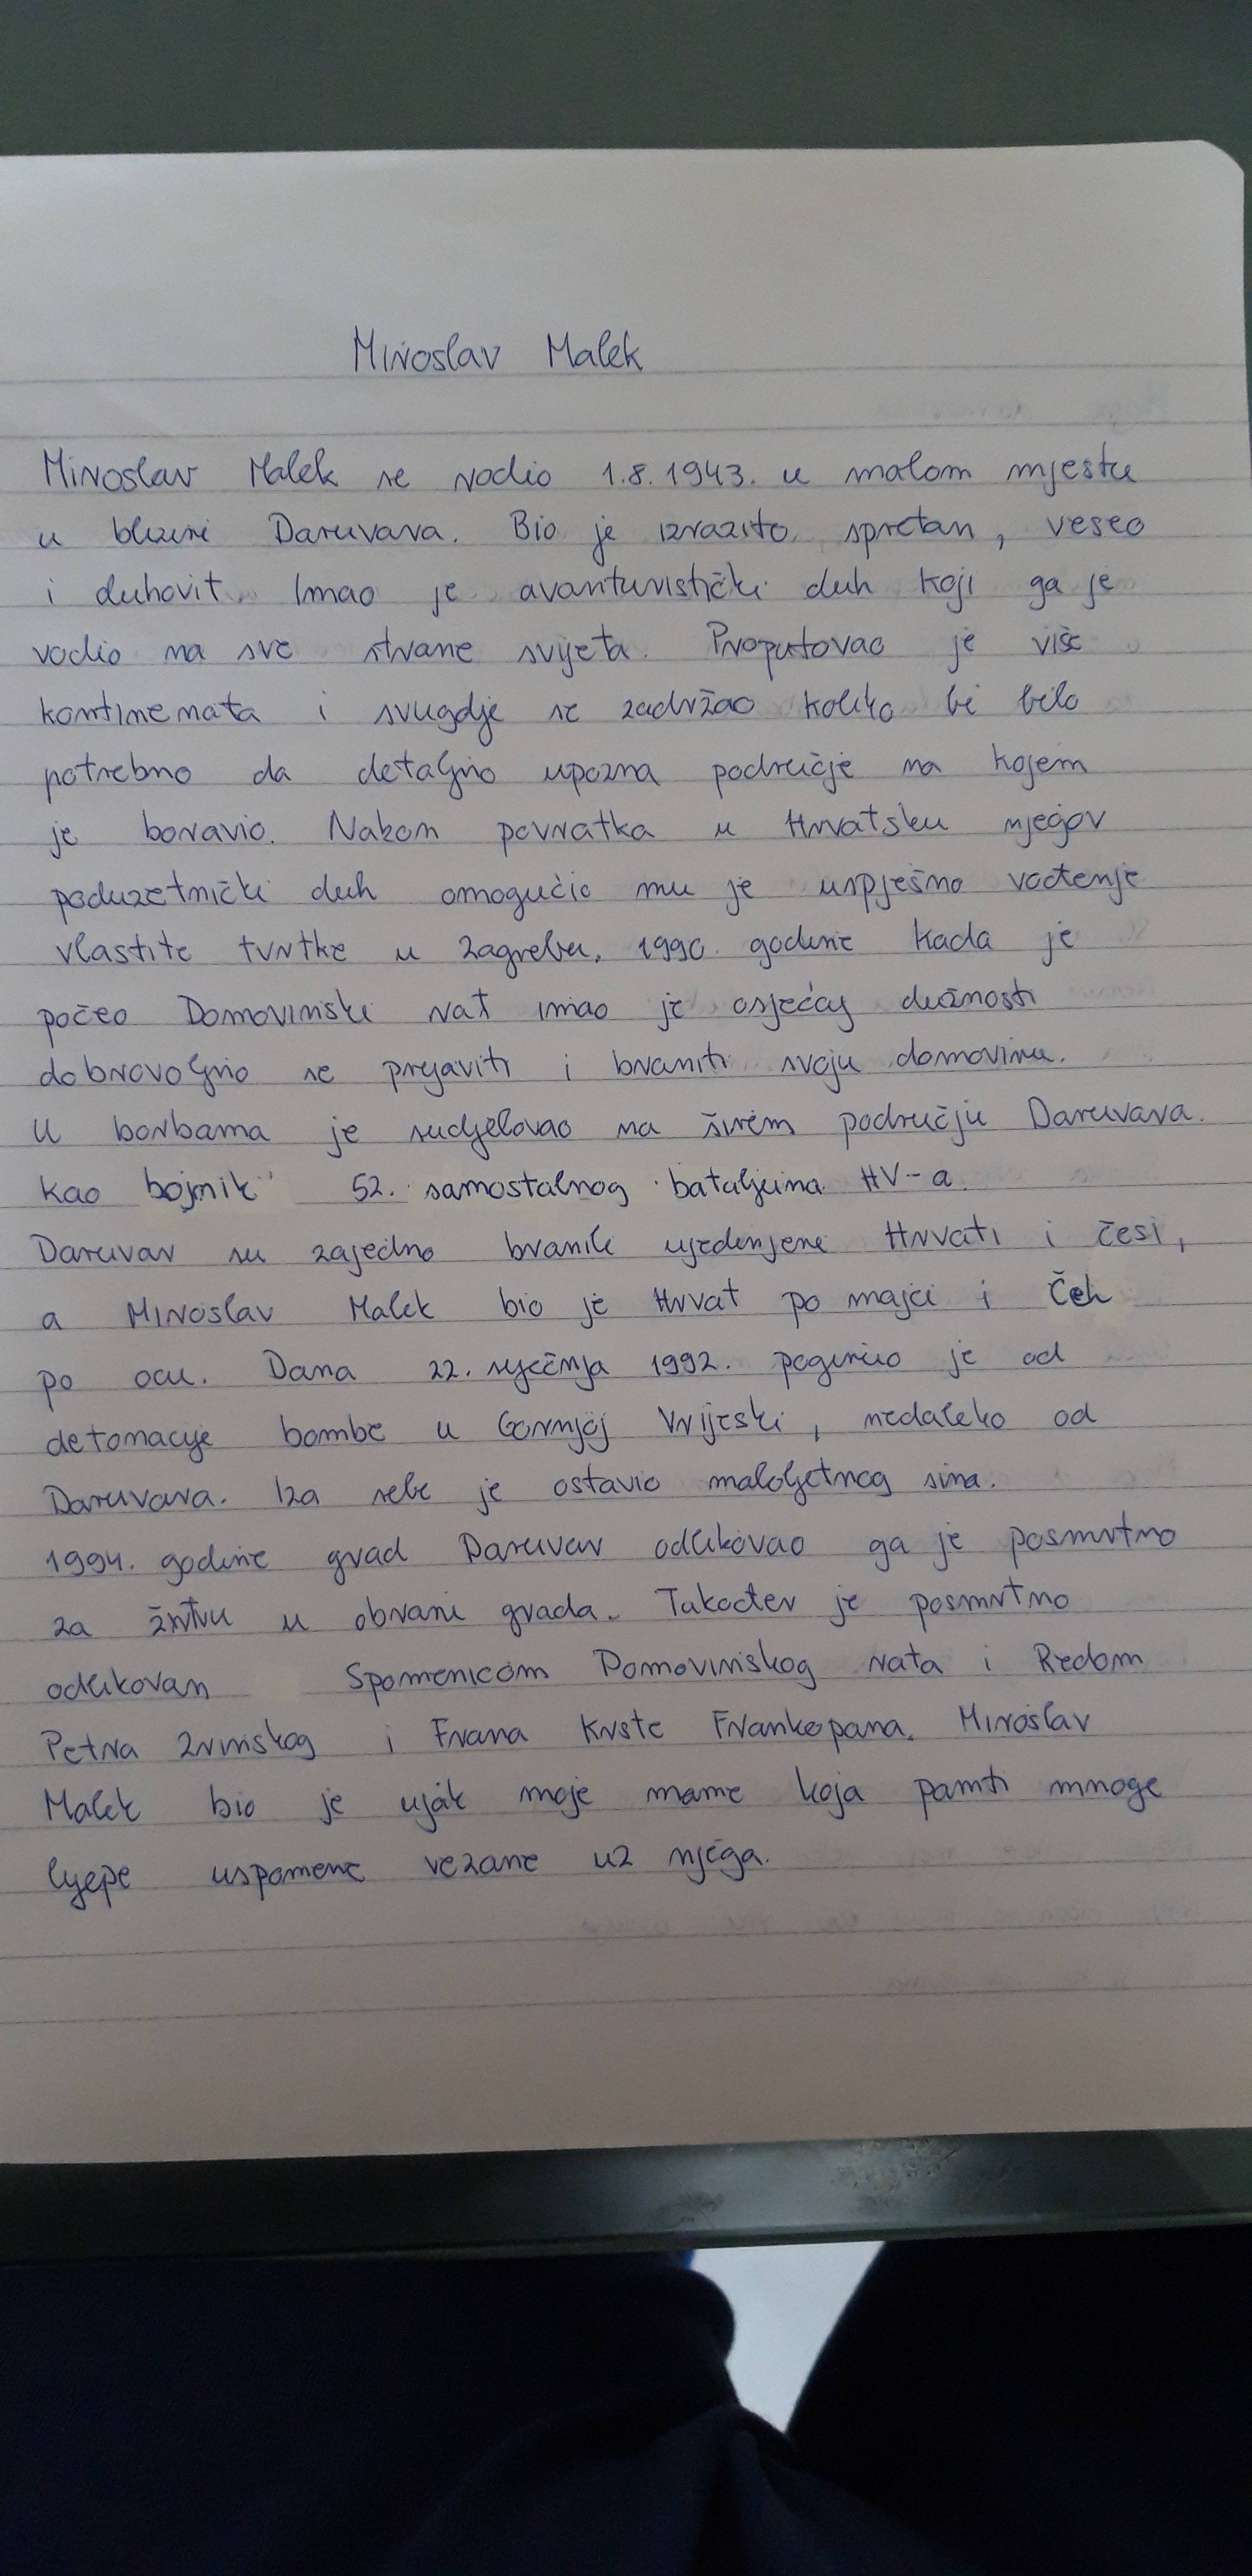 Miroslav Malek
Miroslav Malek se rodio 1.8.1943. u malom mjestu
u blizini Daruvara. Bio je izrazito spretan, veseo
i duhovit. Imao je avanturistički duh koji ga je
vodio na sve strane svijeta. Proputovao je više
kontinenata i svugdje se zadržao koliko bi bilo
potrebno da detaljno upozna područje na kojem
je boravio. Nakon povratka u Hrvatsku njegov
poduzetnički duh omogućio mu je uspješno vođenje
vlastite tvrtke u Zagrebu. 1990. godine kada je
počeo Domovinski rat imao je osjećaj dužnosti
dobrovoljno se prijaviti i braniti svoju domovinu.
U borbama je sudjelovao na širem području Daruvara.
kao bojnik 52. samostalnog bataljuna HV-a.
Daruvar su zajedno branili ujedinjeni Hrvati i Česi,
a Miroslav Malek bio je Hrvat po majci i Čeh
po ocu. Dana 22. siječnja 1992. poginuo je od
detonacije bombe u Gornjoj Vrijeski, nedaleko od
Daruvara. Iza sebe je ostavio maloljetnog sina.
1994. godine grad Daruvar odlikovao ga je posmrtno
za žrtvu u obrani grada. Također je posmrtno
odlikovan Spomenicom Domovinskog rata i Redom
Petra Zrinskog i Frana Krste Frankopana. Miroslav
Malek bio je ujak moje mame koja pamti mnoge
lijepe uspomene vezane uz njega.